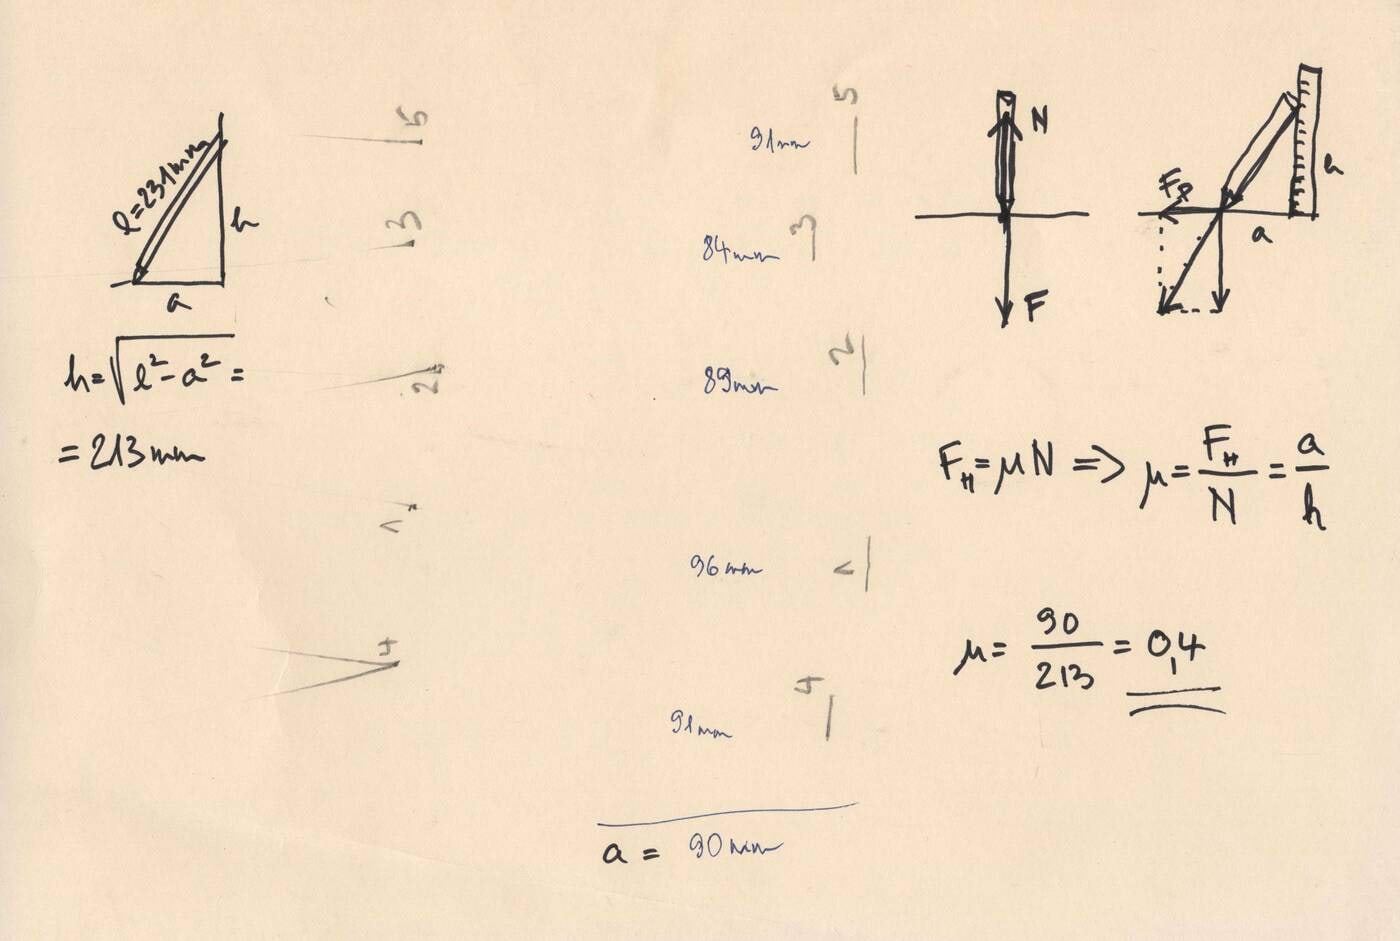 l=231mm
h
a
h=√l²-a² =
= 213mm
5
3
2
1
4
91mm
5
84mm
3
89mm
2
96mm
1
91mm
4
a = 90mm
N
F
h
a
F_H=μN => μ=F_H/N=a/h
μ= 90/213 = 0,4